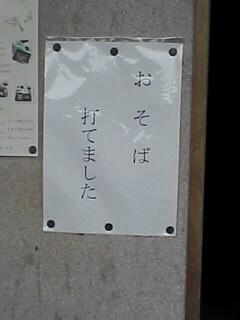 おそば
打てました